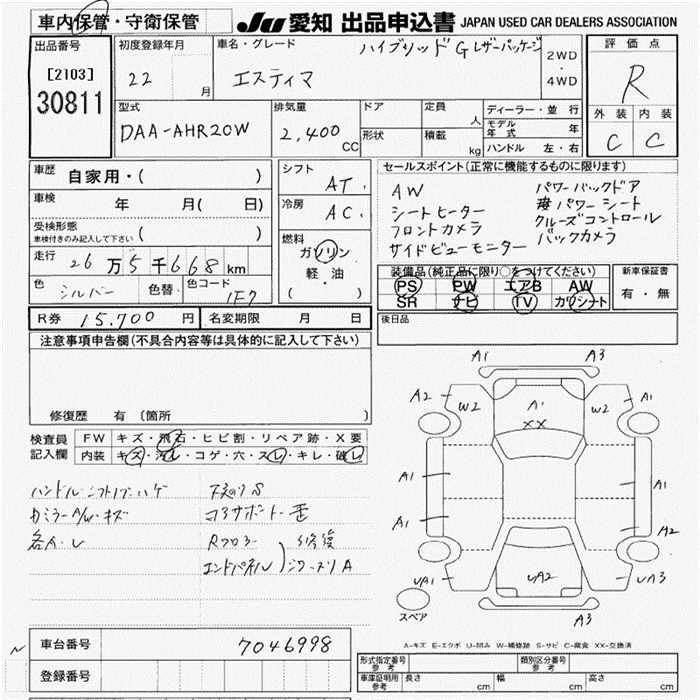 車内保管・守衛保管
JU 愛知 出品申込書 JAPAN USED CAR DEALERS ASSOCIATION
出品番号
[2103]
30811
初度登録年月
22 月
車名・グレード
ハイブリッド G レザーパッケージ
エスティマ
2WD
・
4WD
評価点
R
外装 内装
C C
型式
DAA-AHR20W
排気量
2,400 CC
ドア
形状
定員 人
積載 kg
ディーラー・並行
モデル年式 年
ハンドル 左・右
車歴 自家用・( )
車検 年 月( 日)
受検形態
車検付きのみ記入して下さい ( )
走行 26万5千668km
色 シルバー 色替 色コード 1F7
シフト AT.
冷房 AC.
燃料
ガソリン
軽・油
( )
セールスポイント(正常に機能するものに限ります)
AW
シートヒーター
フロントカメラ
サイドビューモニター
パワーバックドア
パワーシート
クルーズコントロール
バックカメラ
装備品(純正品に限り○をつけてください)
PS PW エアB AW
SR ナビ TV カワシート
新車保証書
有・無
後日品
R券 15,700 円 名変期限 月 日
注意事項申告欄(不具合内容等は具体的に記入して下さい)
修復歴 有 (箇所 )
検査員記入欄
FW キズ・飛石・ヒビ割・リペア跡・X要
内装 キズ・汚レ・コゲ・穴・スレ・キレ・破レ
ハンドル・シフトノブ・ハゲ
カミラーA/W・キズ
コアサポート・歪
エンドパネル
修復
A1 A3
A2 W2 A1 W2 A1
XX
A1 A1
A1 A2
UA1 UA2 UA3
A3
スペア
A-キズ E-エクボ U-凹み W-補修跡 S-サビ C-腐食 XX-交換済
車台番号 7046998
登録番号
形式指定番号 参考 類別区分番号 参考
車庫証明用 参考 長さ cm 幅 cm 高さ cm